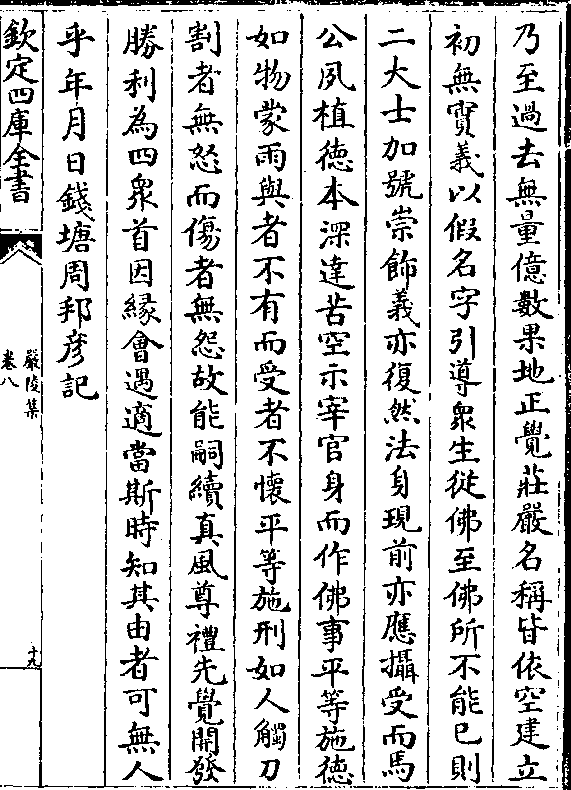 乃至過去無量億數果地正覺莊嚴名稱皆依空建立
初無實義以假名字引導衆生從佛至佛所不能已則
二大士加號崇飾義亦復然法身現前亦應攝受而馬
公夙植德本深達苦空示宰官身而作佛事平等施德
如物蒙雨與者不有而受者不懷平等施刑如人觸刀
割者無怒而傷者無怨故能嗣續真風尊禮先覺開發
勝利為四衆首因緣會遇適當斯時知其由者可無人
乎年月日錢塘周邦彦記
欽定四庫全書
嚴陵集
卷八
十九